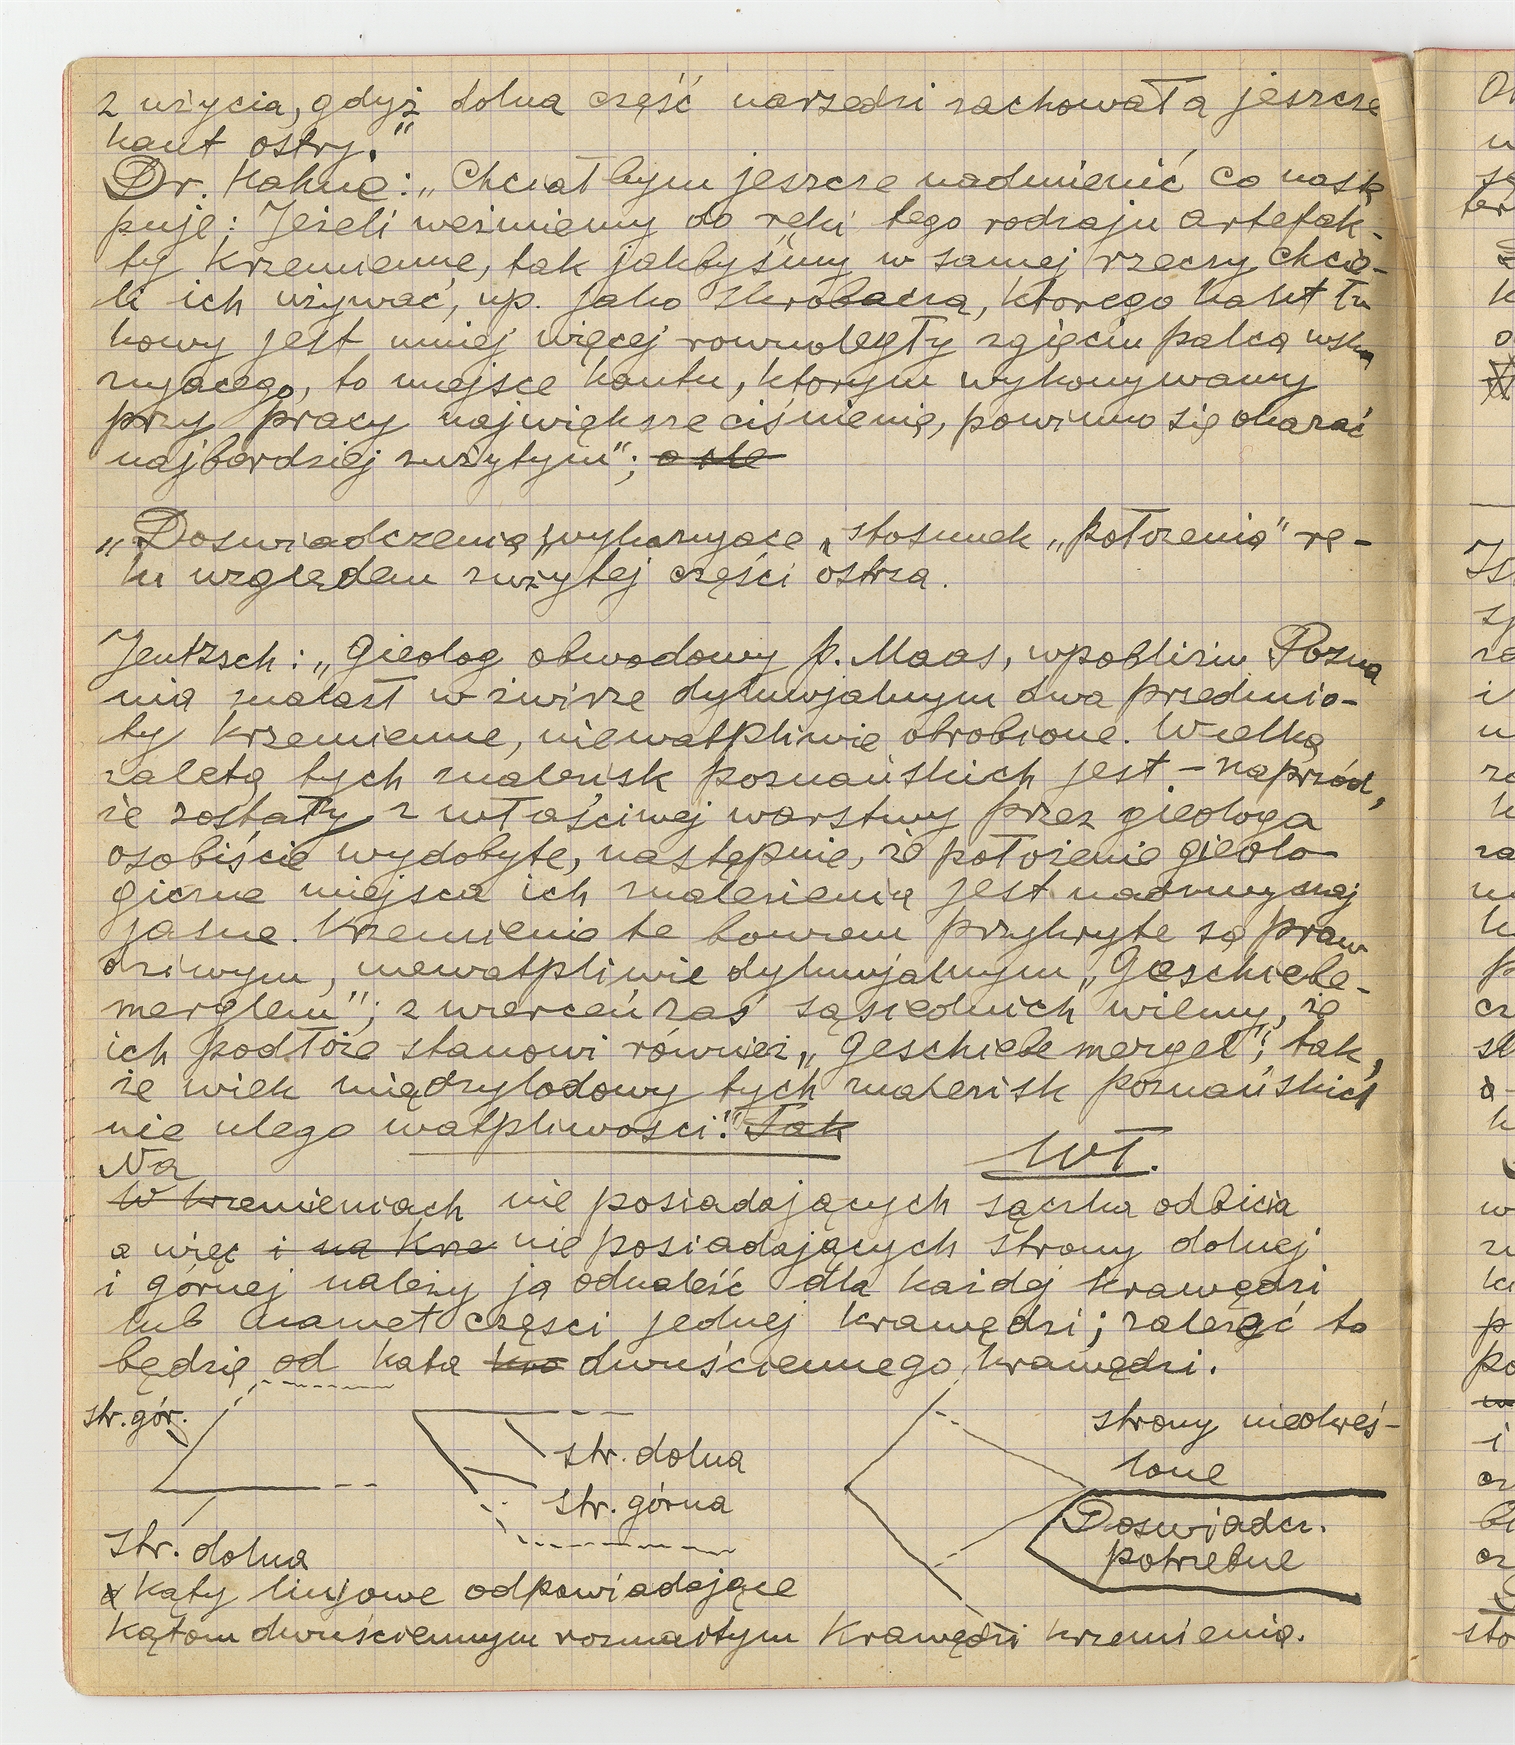 z użycia, gdyż dolna część narzędzi zachowała jeszcze
kant ostry."
Dr. Hahne: „Chciałbym jeszcze nadmienić co nastę
puje: Jeżeli weźmiemy do ręki tego rodzaju artefak-
ty krzemienne, tak jakbyśmy w samej rzeczy chcie-
li ich używać, np. jako skrobacza, ktorego kant łu
kowy jest mniej więcej rownoległy zgięciu palca wska
zującego, to miejsce kantu, ktorym wykonywamy
przy pracy największe ciśnienie, powinno się okazać
najbardziej zużytym"; a ste
„Doswiadczenia wykazujące „stosunek „położenia" rę-
ki względem zużytej części ostrza.
Jentzsch: „Gieolog obwodowy p. Maas, wpobliżu Pozna
nia znalazł w żwirze dyluwjalnym dwa przedmio-
ty krzemienne, niewatpliwie obrobione. Wielką
zaletą tych znalezisk poznańskich jest – naprzód,
że zostały z właściwej warstwy przez gieologa
osobiście wydobyte, następnie, że położenie gieolo-
giczne miejsca ich znalezienia jest nadzwyczaj
jasne. Krzemienie te bowiem przykryte są praw
dziwym, niewatpliwie dyluwjalnym „Geschiebe-
merglem"; z wierceń zaś sąsiednich wiemy, że
ich podłoże stanowi również „Geschiebemergel"; tak,
że wiek międzylodowy tych znalezisk poznańskich
nie ulega watpliwosci." Tak
Wł.
Na
W krzemieniach nie posiadających sączka odbicia
a więc i na krze nie posiadających strony dolnej
i górnej należy ją odnaleść dla każdej krawędzi
lub nawet częsci jednej krawędzi; zależeć to
będzie od kata kra dwuściennego krawędzi.
str. gór.
str. dolna
str. górna
strony nieokreś-
lone
Doswiadcz.
potrzebne
str. dolna
x kąty linjowe odpowiadające
kątom dwuściennym rozmaitym krawędzi krzemienia.